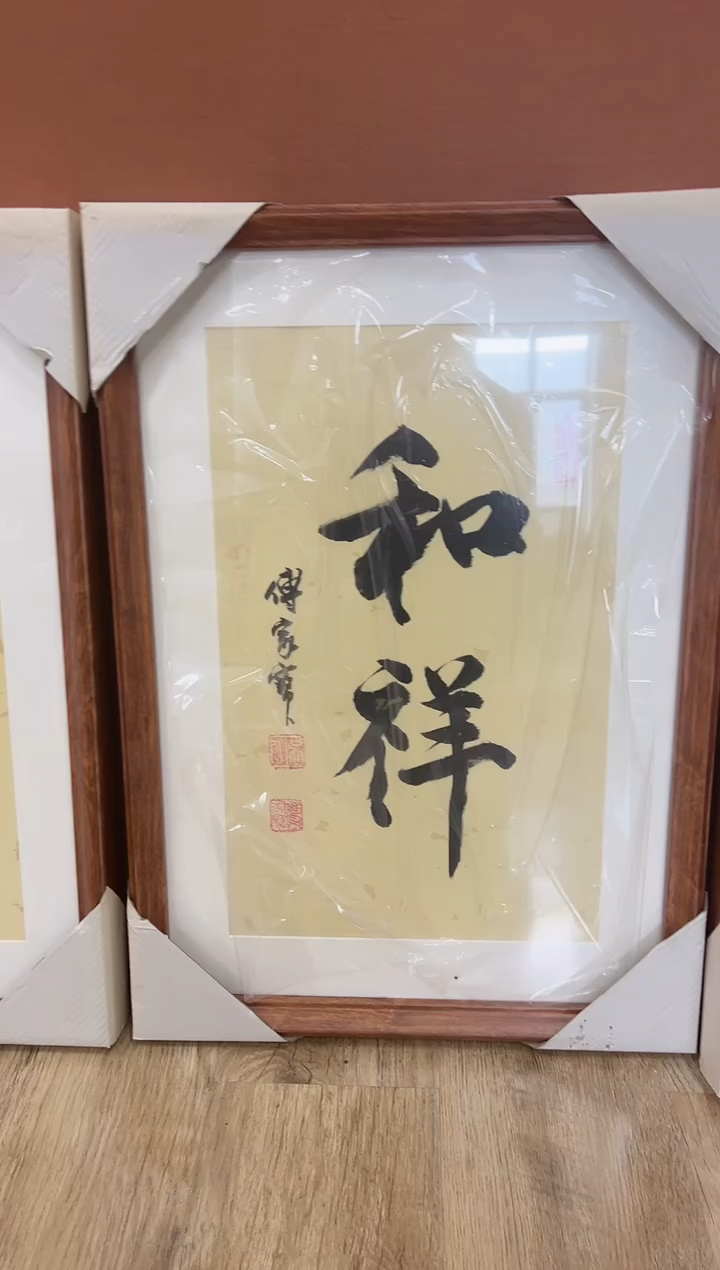 和祥
傅家宝